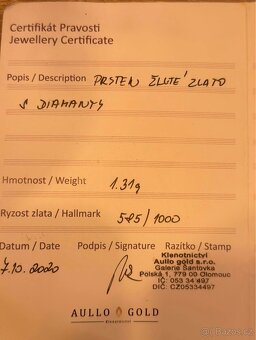 Certifikát Pravosti
Jewellery Certificate
Popis / Description PRSTEN ŽLUTÉ ZLATO
S DIAMANTY
Hmotnost / Weight 1.31g
Ryzost zlata / Hallmark 585/1000
Datum / Date Podpis / Signature Razítko / Stamp
7.10.2020
Klenotnictví
Aullo gold s.r.o.
Galerie Šantovka
Polská 1, 779 00 Olomouc
IČ: 053 34 497
DIČ: CZ05334497
AULLO GOLD
Klenotnictví